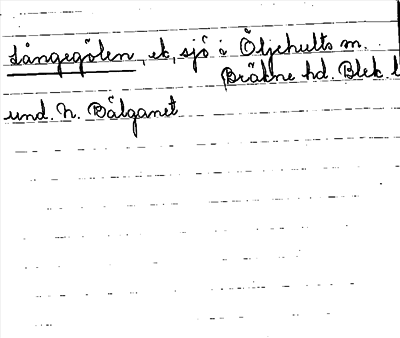 Långegölen, ek, sjö i Öljehults sn.
Bräkne hd. Blek. l
und. N. Bälganet